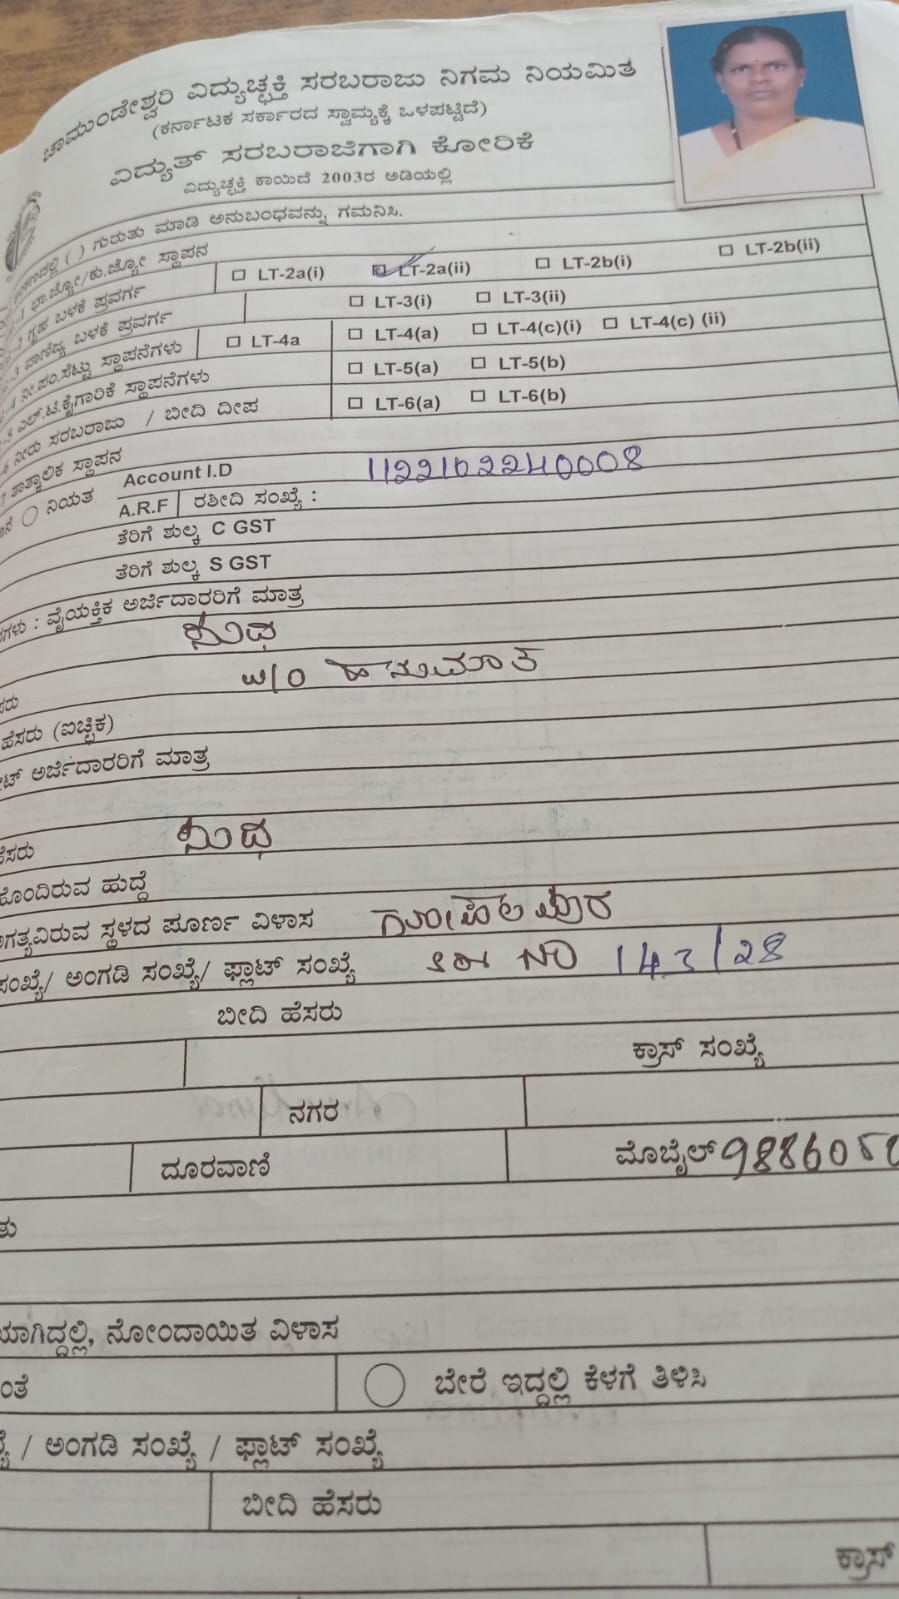 ಚಾಮುಂಡೇಶ್ವರಿ ವಿದ್ಯುಚ್ಛಕ್ತಿ ಸರಬರಾಜು ನಿಗಮ ನಿಯಮಿತ
(ಕರ್ನಾಟಕ ಸರ್ಕಾರದ ಸ್ವಾಮ್ಯಕ್ಕೆ ಒಳಪಟ್ಟಿದೆ)
ವಿದ್ಯುತ್ ಸರಬರಾಜಿಗಾಗಿ ಕೋರಿಕೆ
ವಿದ್ಯುಚ್ಛಕ್ತಿ ಕಾಯಿದೆ 2003ರ ಅಡಿಯಲ್ಲಿ
( ) ಗುರುತು ಮಾಡಿ ಅನುಬಂಧವನ್ನು ಗಮನಿಸಿ.
ಭಾ.ಜ್ಯೋ/ಕು.ಜ್ಯೋ ಸ್ಥಾಪನ
ಗೃಹ ಬಳಕೆ ಪ್ರವರ್ಗ LT-2a(i) LT-2a(ii) LT-2b(i) LT-2b(ii)
ವಾಣಿಜ್ಯ ಬಳಕೆ ಪ್ರವರ್ಗ LT-3(i) LT-3(ii)
ನೀ.ಪಂ.ಸೆಟ್ಟು ಸ್ಥಾಪನೆಗಳು LT-4a LT-4(a) LT-4(c)(i) LT-4(c) (ii)
ಎಲ್.ಟಿ.ಕೈಗಾರಿಕೆ ಸ್ಥಾಪನೆಗಳು LT-5(a) LT-5(b)
ನೀರು ಸರಬರಾಜು / ಬೀದಿ ದೀಪ LT-6(a) LT-6(b)
ತಾತ್ಕಾಲಿಕ ಸ್ಥಾಪನ
ನಿಯತ Account I.D 1122102240008
A.R.F ರಶೀದಿ ಸಂಖ್ಯೆ :
ತೆರಿಗೆ ಶುಲ್ಕ C GST
ತೆರಿಗೆ ಶುಲ್ಕ S GST
: ವೈಯಕ್ತಿಕ ಅರ್ಜಿದಾರರಿಗೆ ಮಾತ್ರ
ಸುಧ
w/o ಹನುಮಾತ
ಹೆಸರು (ಐಚ್ಛಿಕ)
ಅರ್ಜಿದಾರರಿಗೆ ಮಾತ್ರ
ಹೆಸರು ಸುಧ
ಹೊಂದಿರುವ ಹುದ್ದೆ
ಅಗತ್ಯವಿರುವ ಸ್ಥಳದ ಪೂರ್ಣ ವಿಳಾಸ ಗೋಪಾಲಪುರ
ಸಂಖ್ಯೆ/ ಅಂಗಡಿ ಸಂಖ್ಯೆ/ ಫ್ಲಾಟ್ ಸಂಖ್ಯೆ ನಂ 143/28
ಬೀದಿ ಹೆಸರು
ಕ್ರಾಸ್ ಸಂಖ್ಯೆ
ನಗರ
ದೂರವಾಣಿ ಮೊಬೈಲ್ 988605
ನೋಂದಾಯಿತ ವಿಳಾಸ
ಬೇರೆ ಇದ್ದಲ್ಲಿ ಕೆಳಗೆ ತಿಳಿಸಿ
/ ಅಂಗಡಿ ಸಂಖ್ಯೆ / ಫ್ಲಾಟ್ ಸಂಖ್ಯೆ
ಬೀದಿ ಹೆಸರು
ಕ್ರಾಸ್